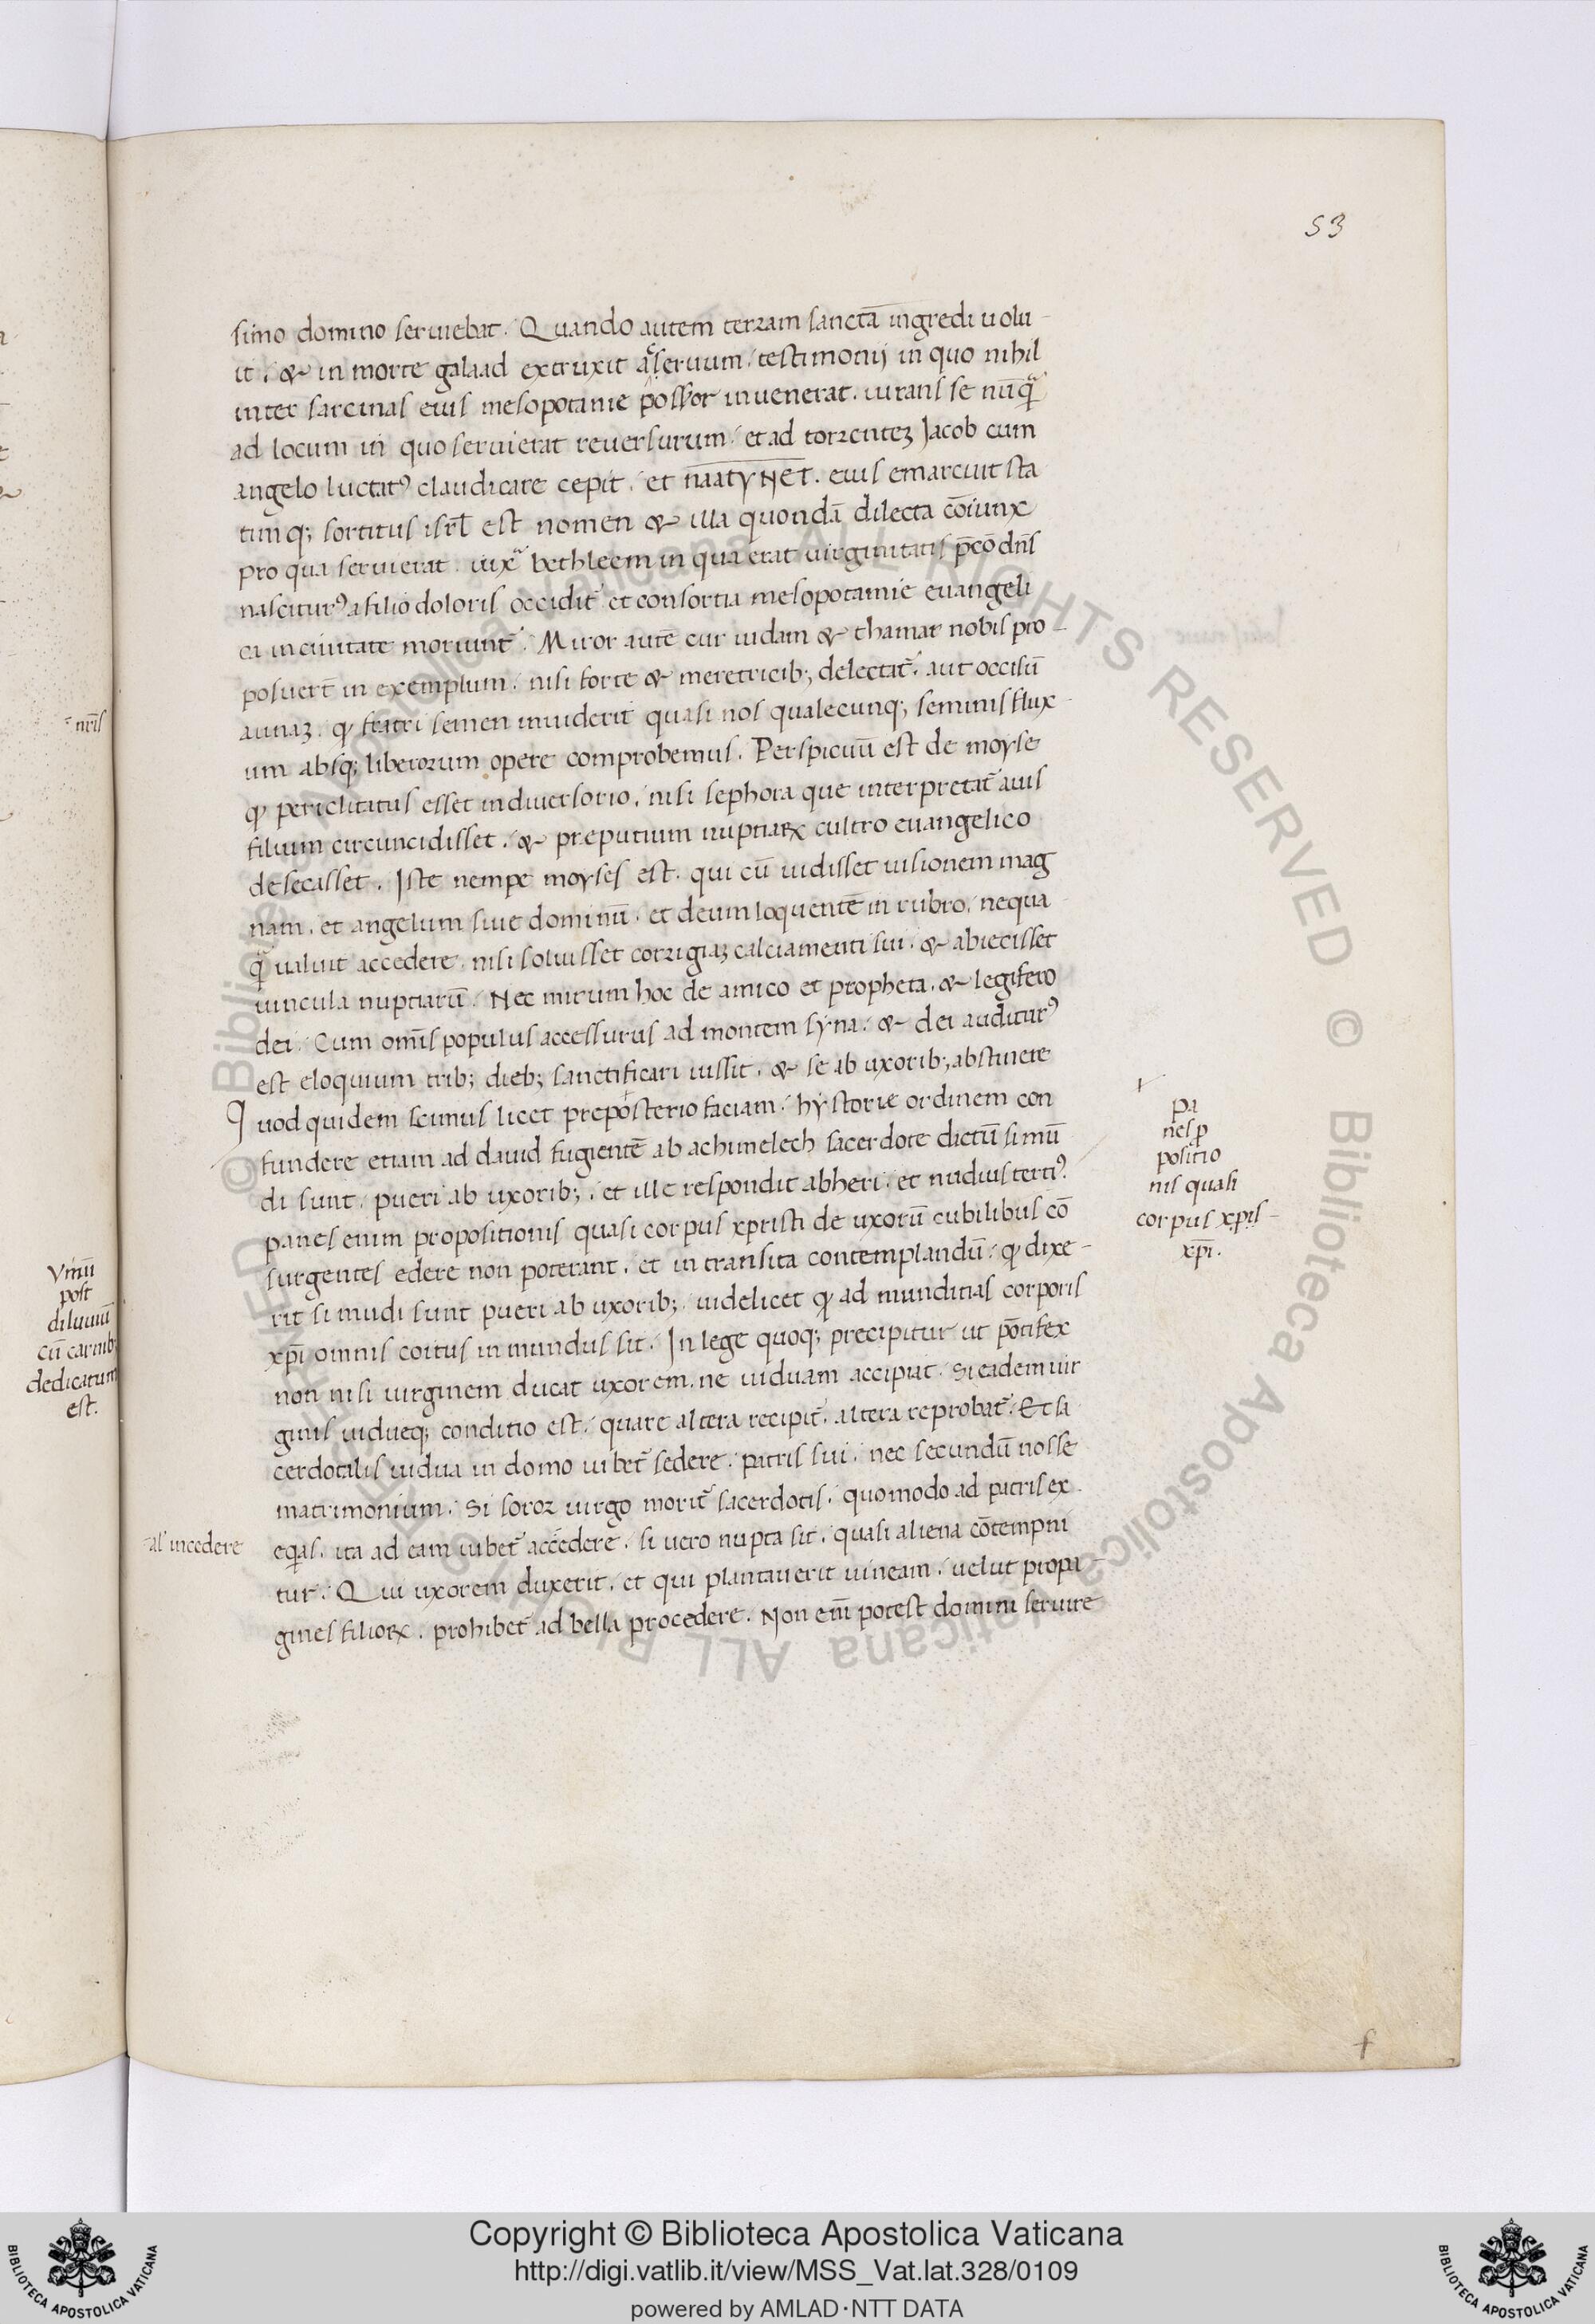 53
simo domino seruiebat. Quando autem terram sanctā ingredi uolu-
it. & in morte galaad extruxit aceruum. testimonij in quo nihil
inter sarcinas eius mesopotamie possor inuenerat. iurans se nūq̄
ad locum in quo seruierat reuersurum. et ad torrentez Jacob cum
angelo luctatꝰ claudicare cepit. et naatyNET. eius emarcuit sta
timq; sortitus isrl̄ est nomen & illa quondā dilecta cōiunx
pro qua seruierat. iuxͣ bethleem in qua erat uirginitatis p̄co dn̄s
nasciturꝰ a filio doloris occidit̄ et consortia mesopotamie euangeli
ca in ciuitate moriunt̄. Miror autē cur iudam & thamar nobis pro-
posuert̄ in exemplum. nisi forte & meretricib; delectat̄. aut occisū
aunaz. ꝙ fratri semen inuiderit quasi nos qualecunq; seminis flux-
um absq; liberorum opere comprobemus. Perspicuū est de moyse
ꝙ periclitatus esset in diuersorio. nisi sephora que interpretat̄ auis
filium circuncidisset. & preputium nuptiaꝝ cultro euangelico
desecasset. Iste nempe moyses est. qui cū uidisset uisionem mag
nam. et angelum siue dominū. et deum loquentē in rubro. nequa
q̄ ualuit accedere. nisi soluisset corrigiaz calciamenti sui. & abiecisset
uincula nuptiarū. Nec mirum hoc de amico et propheta. & legifero
dei. Cum om̄is populus accessurus ad montem syna. & dei auditurꝰ
est eloquium trib; dieb; sanctificari iussit. & se ab uxorib; abstinere
Quod quidem scimus licet preposterio faciam. hystorie ordinem con
fundere etiam ad dauid fugientē ab achimelech sacerdote dictū si mū
di sunt. pueri ab uxorib;. et ille respondit ab heri. et nudius tertiꝰ.
panes enim propositionis quasi corpus xpristi de uxorū cubilibus cō
surgentes edere non poterant. et in transita contemplandū. ꝙ dixe-
rit si mudi sunt pueri ab uxorib;. uidelicet ꝙ ad munditias corporis
xp̄i omnis coitus in mundus sit. In lege quoq; precipitur ut pōtifex
non nisi uirginem ducat uxorem. ne uiduam accipiat. Si eadem uir
ginis uidueq; conditio est. quare altera recipit̄. altera reprobat̄. Et sa
cerdotalis uidua in domo iubet̄ sedere. patris sui. nec secundū nosse
matrimonium. Si soror uirgo morit̄ sacerdotis. quomodo ad patris ex-
eq̄as. ita ad eam iubet̄ accedere. si uero nupta sit. quasi aliena cōtempni
tur. Qui uxorem duxerit. et qui plantauerit uineam. uelut propa-
gines filioꝝ. prohibet̄ ad bella procedere. Non em̄ potest domini seruire
pa
nes ꝓ
positio
nis quasi
corpus xpis-
xp̄i.
al' incedere
nr̄is
Vinū
post
diluuiū
cū carnib;
dedicatum
est.
f
© Biblioteca Apostolica Vaticana ALL RIGHTS RESERVED © Biblioteca Apostolica Vaticana ALL RIGHTS RESERVED
Copyright © Biblioteca Apostolica Vaticana
http://digi.vatlib.it/view/MSS_Vat.lat.328/0109
powered by AMLAD·NTT DATA
BIBLIOTECA APOSTOLICA VATICANA
BIBLIOTECA APOSTOLICA VATICANA